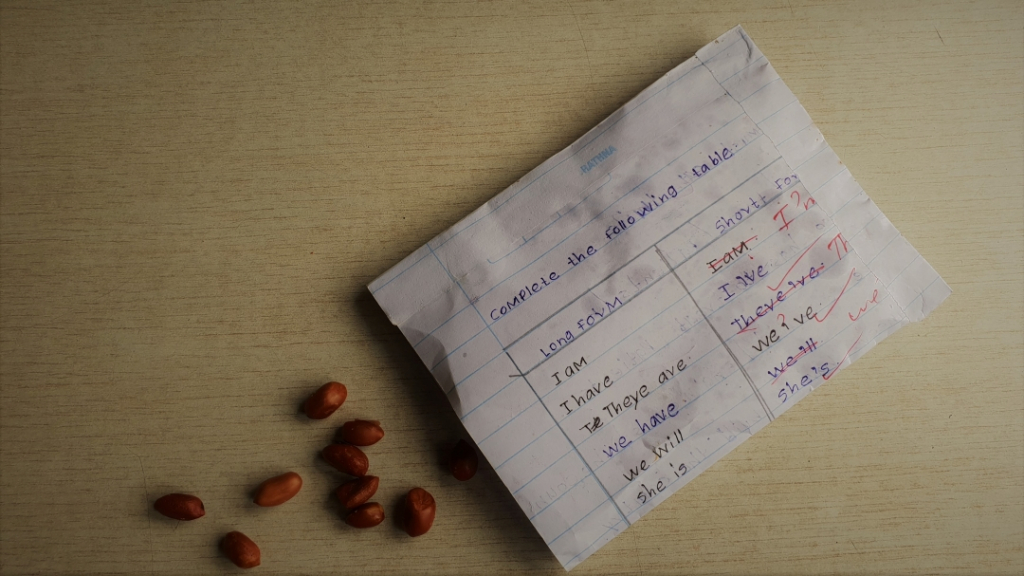 RATHNA
COMPLETE the Following table
Long Form Short For
I am I am I'm
I have I 've
Te Theye ave There 've Th
we have we've
we will we ill we
she is she's